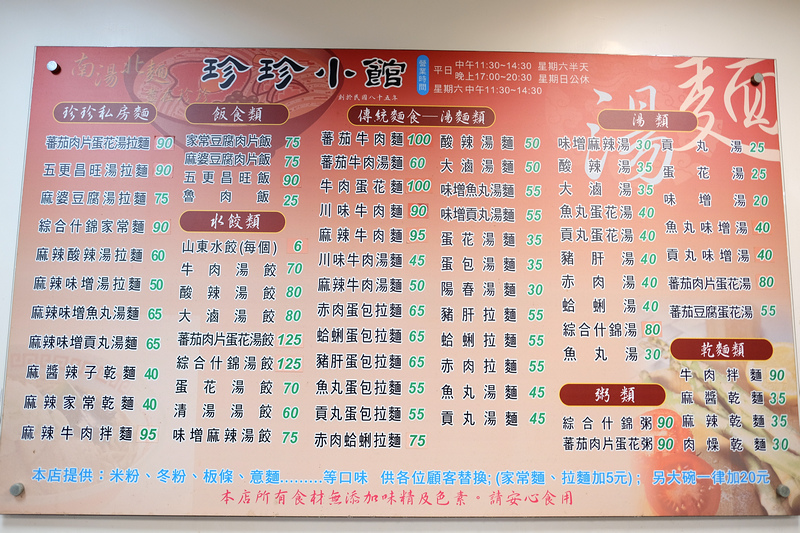 南湯北麵
珍珍小館
創於民國八十五年
營業時間
平日 中午11:30~14:30 星期六半天
晚上17:00~20:30 星期日公休
星期六 中午11:30~14:30
湯麵
珍珍私房麵
蕃茄肉片蛋花湯拉麵 90
五更昌旺湯拉麵 90
麻婆豆腐湯拉麵 75
綜合什錦家常麵 90
麻辣酸辣湯拉麵 60
麻辣味增湯拉麵 50
麻辣味增魚丸湯麵 65
麻辣味增貢丸湯麵 65
麻醬辣子乾麵 40
麻辣家常乾麵 40
麻辣牛肉拌麵 95
飯食類
家常豆腐肉片飯 75
麻婆豆腐肉片飯 75
五更昌旺飯 90
魯肉飯 25
水餃類
山東水餃(每個) 6
牛肉湯餃 70
酸辣湯餃 80
大滷湯餃 80
蕃茄肉片蛋花湯餃 125
綜合什錦湯餃 125
蛋花湯餃 70
清湯湯餃 60
味增麻辣湯餃 75
傳統麵食—湯麵類
蕃茄牛肉麵 100
蕃茄牛肉湯麵 60
牛肉蛋花麵 100
川味牛肉麵 90
麻辣牛肉麵 95
川味牛肉湯麵 45
麻辣牛肉湯麵 50
赤肉蛋包拉麵 65
蛤蜊蛋包拉麵 65
豬肝蛋包拉麵 65
魚丸蛋包拉麵 55
貢丸蛋包拉麵 55
赤肉蛤蜊拉麵 75
酸辣湯麵 50
大滷湯麵 50
味增魚丸湯麵 55
味增貢丸湯麵 55
蛋花湯麵 35
蛋包湯麵 35
陽春湯麵 30
豬肝拉麵 55
蛤蜊拉麵 55
赤肉拉麵 55
魚丸湯麵 45
貢丸湯麵 45
湯類
味增麻辣湯 30
酸辣湯 35
大滷湯 35
魚丸蛋花湯 40
貢丸蛋花湯 40
豬肝湯 40
赤肉湯 40
蛤蜊湯 40
綜合什錦湯 80
魚丸湯 30
貢丸湯 25
蛋花湯 25
味增湯 20
魚丸味增湯 40
貢丸味增湯 40
蕃茄肉片蛋花湯 80
蕃茄豆腐蛋花湯 55
粥類
綜合什錦粥 90
蕃茄肉片蛋花粥 90
乾麵類
牛肉拌麵 90
麻醬乾麵 35
麻辣乾麵 35
肉燥乾麵 30
本店提供：米粉、冬粉、板條、意麵………等口味 供各位顧客替換; (家常麵、拉麵加5元)； 另大碗一律加20元
本店所有食材無添加味精及色素。請安心食用